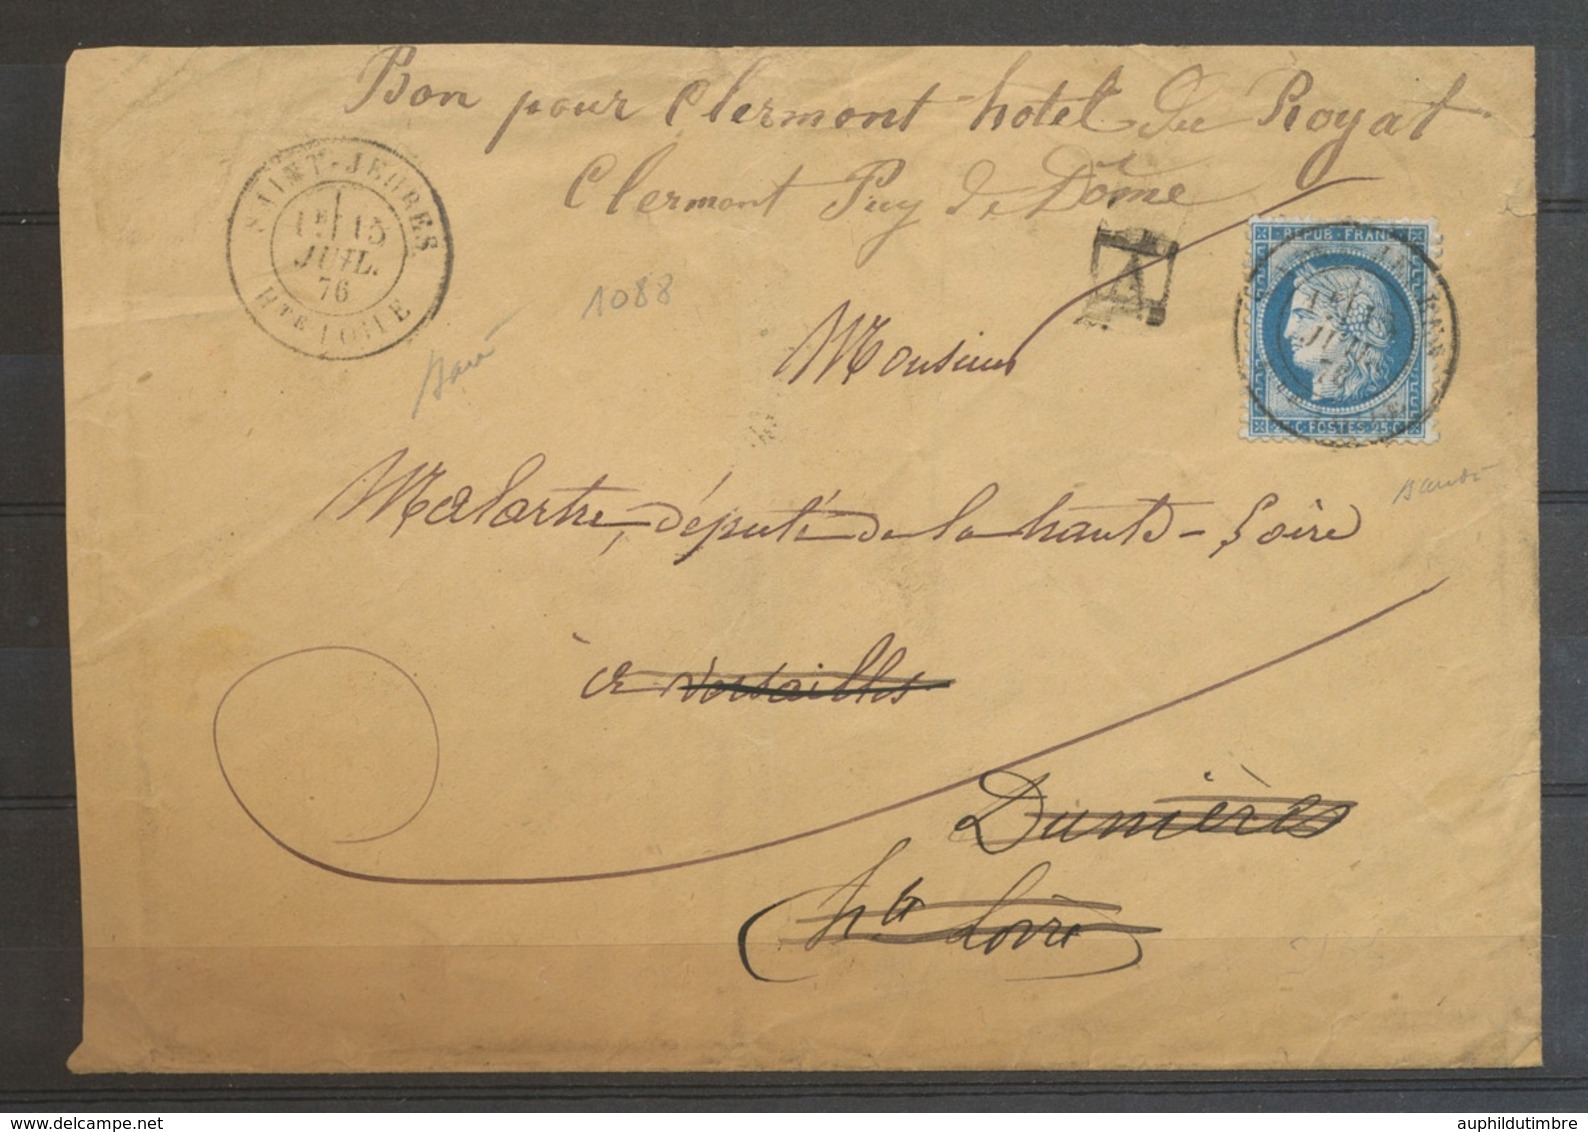 Bon pour Clermont hotel du Royat
Clermont Puy de Dôme
SAINT-JEURES
1E 15
JUIL.
76
HTE LOIRE
1088
A
REPUB. FRANC.
JUIL
76
25 C POSTES 25 C
Monsieur
Malartre, député de la haute-Loire
à Versailles
Dunières
hte Loire
auphildutimbre.com